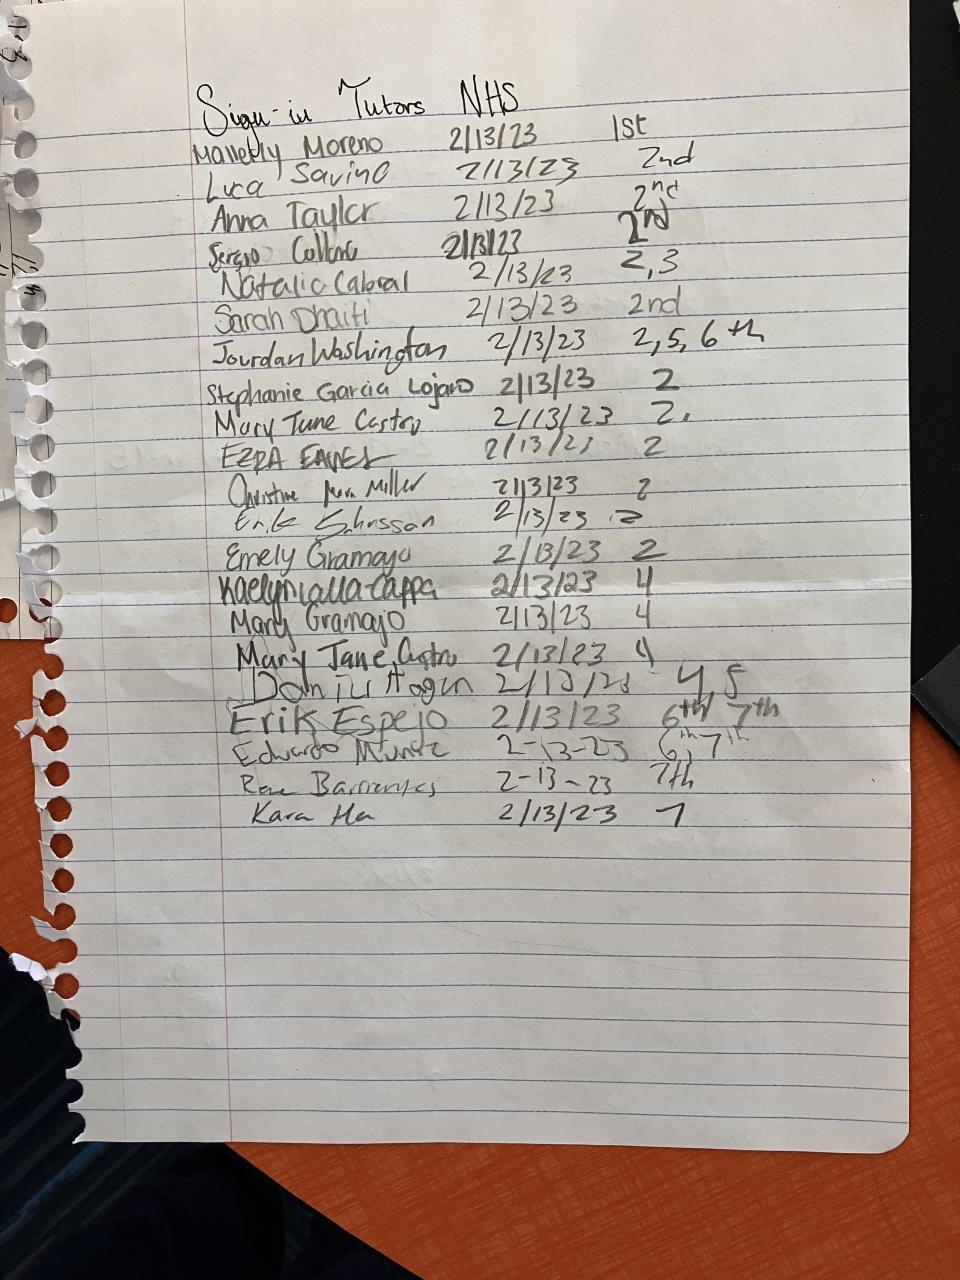 Sign-in Tutors NHS
Mallelly Moreno 2/13/23 1st
Luca Savino 2/13/23 2nd
Anna Taylor 2/13/23 2nd
Sergio 2/13/23 2nd
Natalie Cabral 2/13/23 2,3
Sarah Dhaiti 2/13/23 2nd
Jourdan Washington 2/13/23 2,5,6th
Stephanie Garcia Lojano 2/13/23 2
Mary Jane Castro 2/13/23 2.
EZRA 2/13/23 2
Christine Miller 2/13/23 2
Erik 2/13/23 2
Emely Gramajo 2/13/23 2
2/13/23 4
Mary Gramajo 2/13/23 4
Mary Jane Castro 2/13/23 4
Hagen 2/13/23 4,5
Erik Espejo 2/13/23 6th 7th
Eduardo 2-13-23 6th,7th
2-13-23 7th
Kara Ha 2/13/23 7